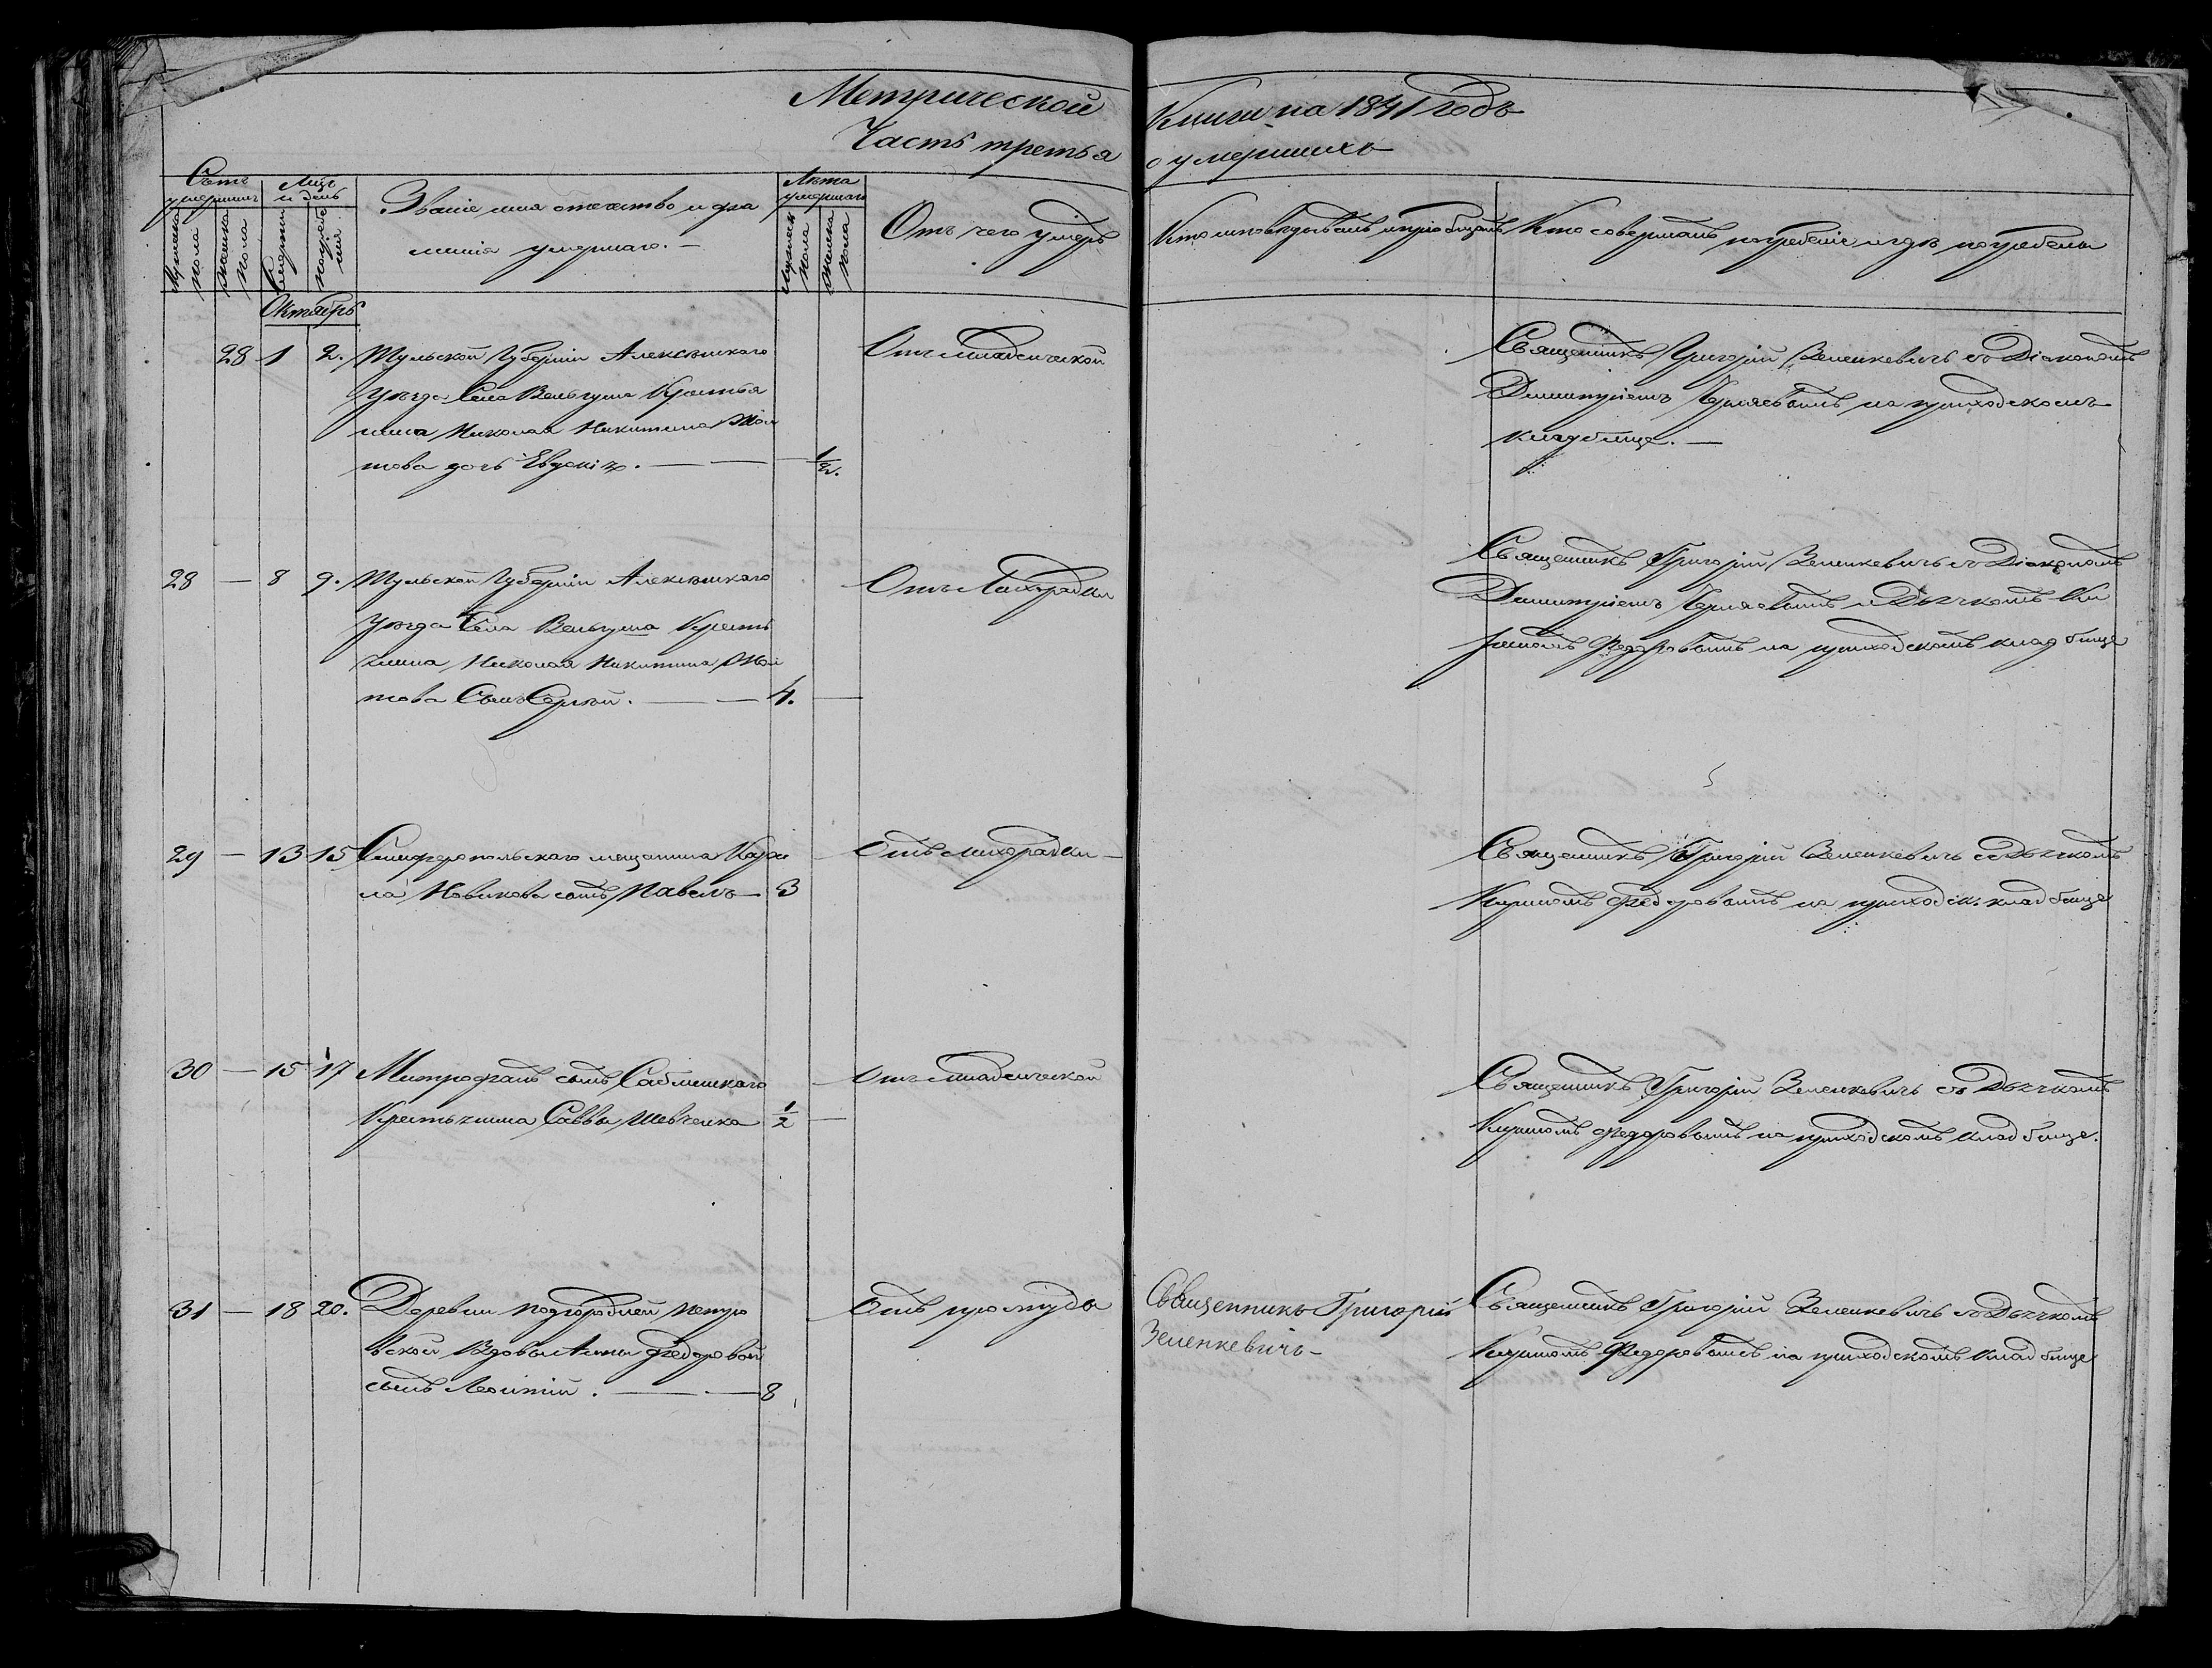 Метрической Книги на 1841 годъ
Часть третья о умершихъ
Счетъ умершихъ
Мужеска пола
Женска пола
Мцъ и день
Смерти
погребенія
Званіе имя отечество и фамилія умершаго. —
Лета умершаго
Мужеск пола
Женска пола
Отъ чего умеръ
Кто исповедывалъ и приобщалъ
Кто совершалъ погребеніе и где погребены
Октябрь
28 1 2. Тульской Губерніи Алексинскаго
Уезда Села Крестья
нина Николая Никитина
това дочь Евдокія. — — 1/2.
Отъ младенческой
Священникъ Григорій Зеленкевичъ съ Діакономъ
Димитріемъ на приходскомъ
кладбище. —
28 — 8 9. Тульской Губерніи Алексинскаго
Уезда Села Кресть
янина Николая Никитина
това Сынъ Сергей. — — 4. —
Отъ Лихорадки
Священникъ Григорій Зеленкевичъ съ Діакономъ
Димитріемъ и Дьячкомъ Ки
риломъ Федоровымъ на приходскомъ кладбище
29 — 13 15 Симферопольскаго мещанина Кири
ла Новикова сынъ Павелъ — 3
Отъ лихорадки —
Священникъ Григорій Зеленкевичъ съ Дьячкомъ
Кириломъ Федоровымъ на приходск. кладбище
30 — 15 17 Митрофанъ сынъ Саблинскаго
Крестьянина Саввы Шевченка 1/2 —
Отъ младенческой
Священникъ Григорій Зеленкевичъ съ Дьячкомъ
Кириломъ Федоровымъ на приходскомъ кладбище.
31 — 18 20. Деревни подгородней петро
вской Вдовы Анны Федоровой
сынъ Леонтій. — — 8
Отъ простуды
Священникъ Григорій
Зеленкевичъ —
Священникъ Григорій Зеленкевичъ съ Дьячкомъ
Кириломъ Федоровымъ на приходскомъ кладбище